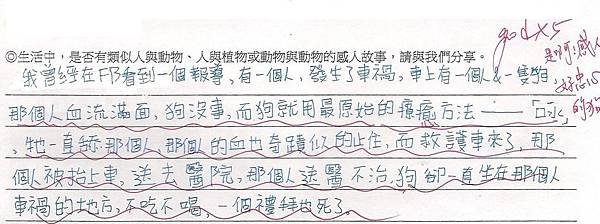 good x5
◎生活中，是否有類似人與動物、人與植物或動物與動物的感人故事，請與我們分享。
是啊!感人
好忠心
的狗
我曾經在FB看到一個報導，有一個人，發生了車禍，車上有一個人&一隻狗
那個人血流滿面，狗沒事，而狗就用最原始的療癒方法——「口水」
，牠一直舔那個人，那個人的血也奇蹟似的止住，而救護車來了，那
個人被抬上車，送去醫院，那個人送醫不治，狗卻一直坐在那個人
車禍的地方，不吃不喝，一個禮拜也死了。